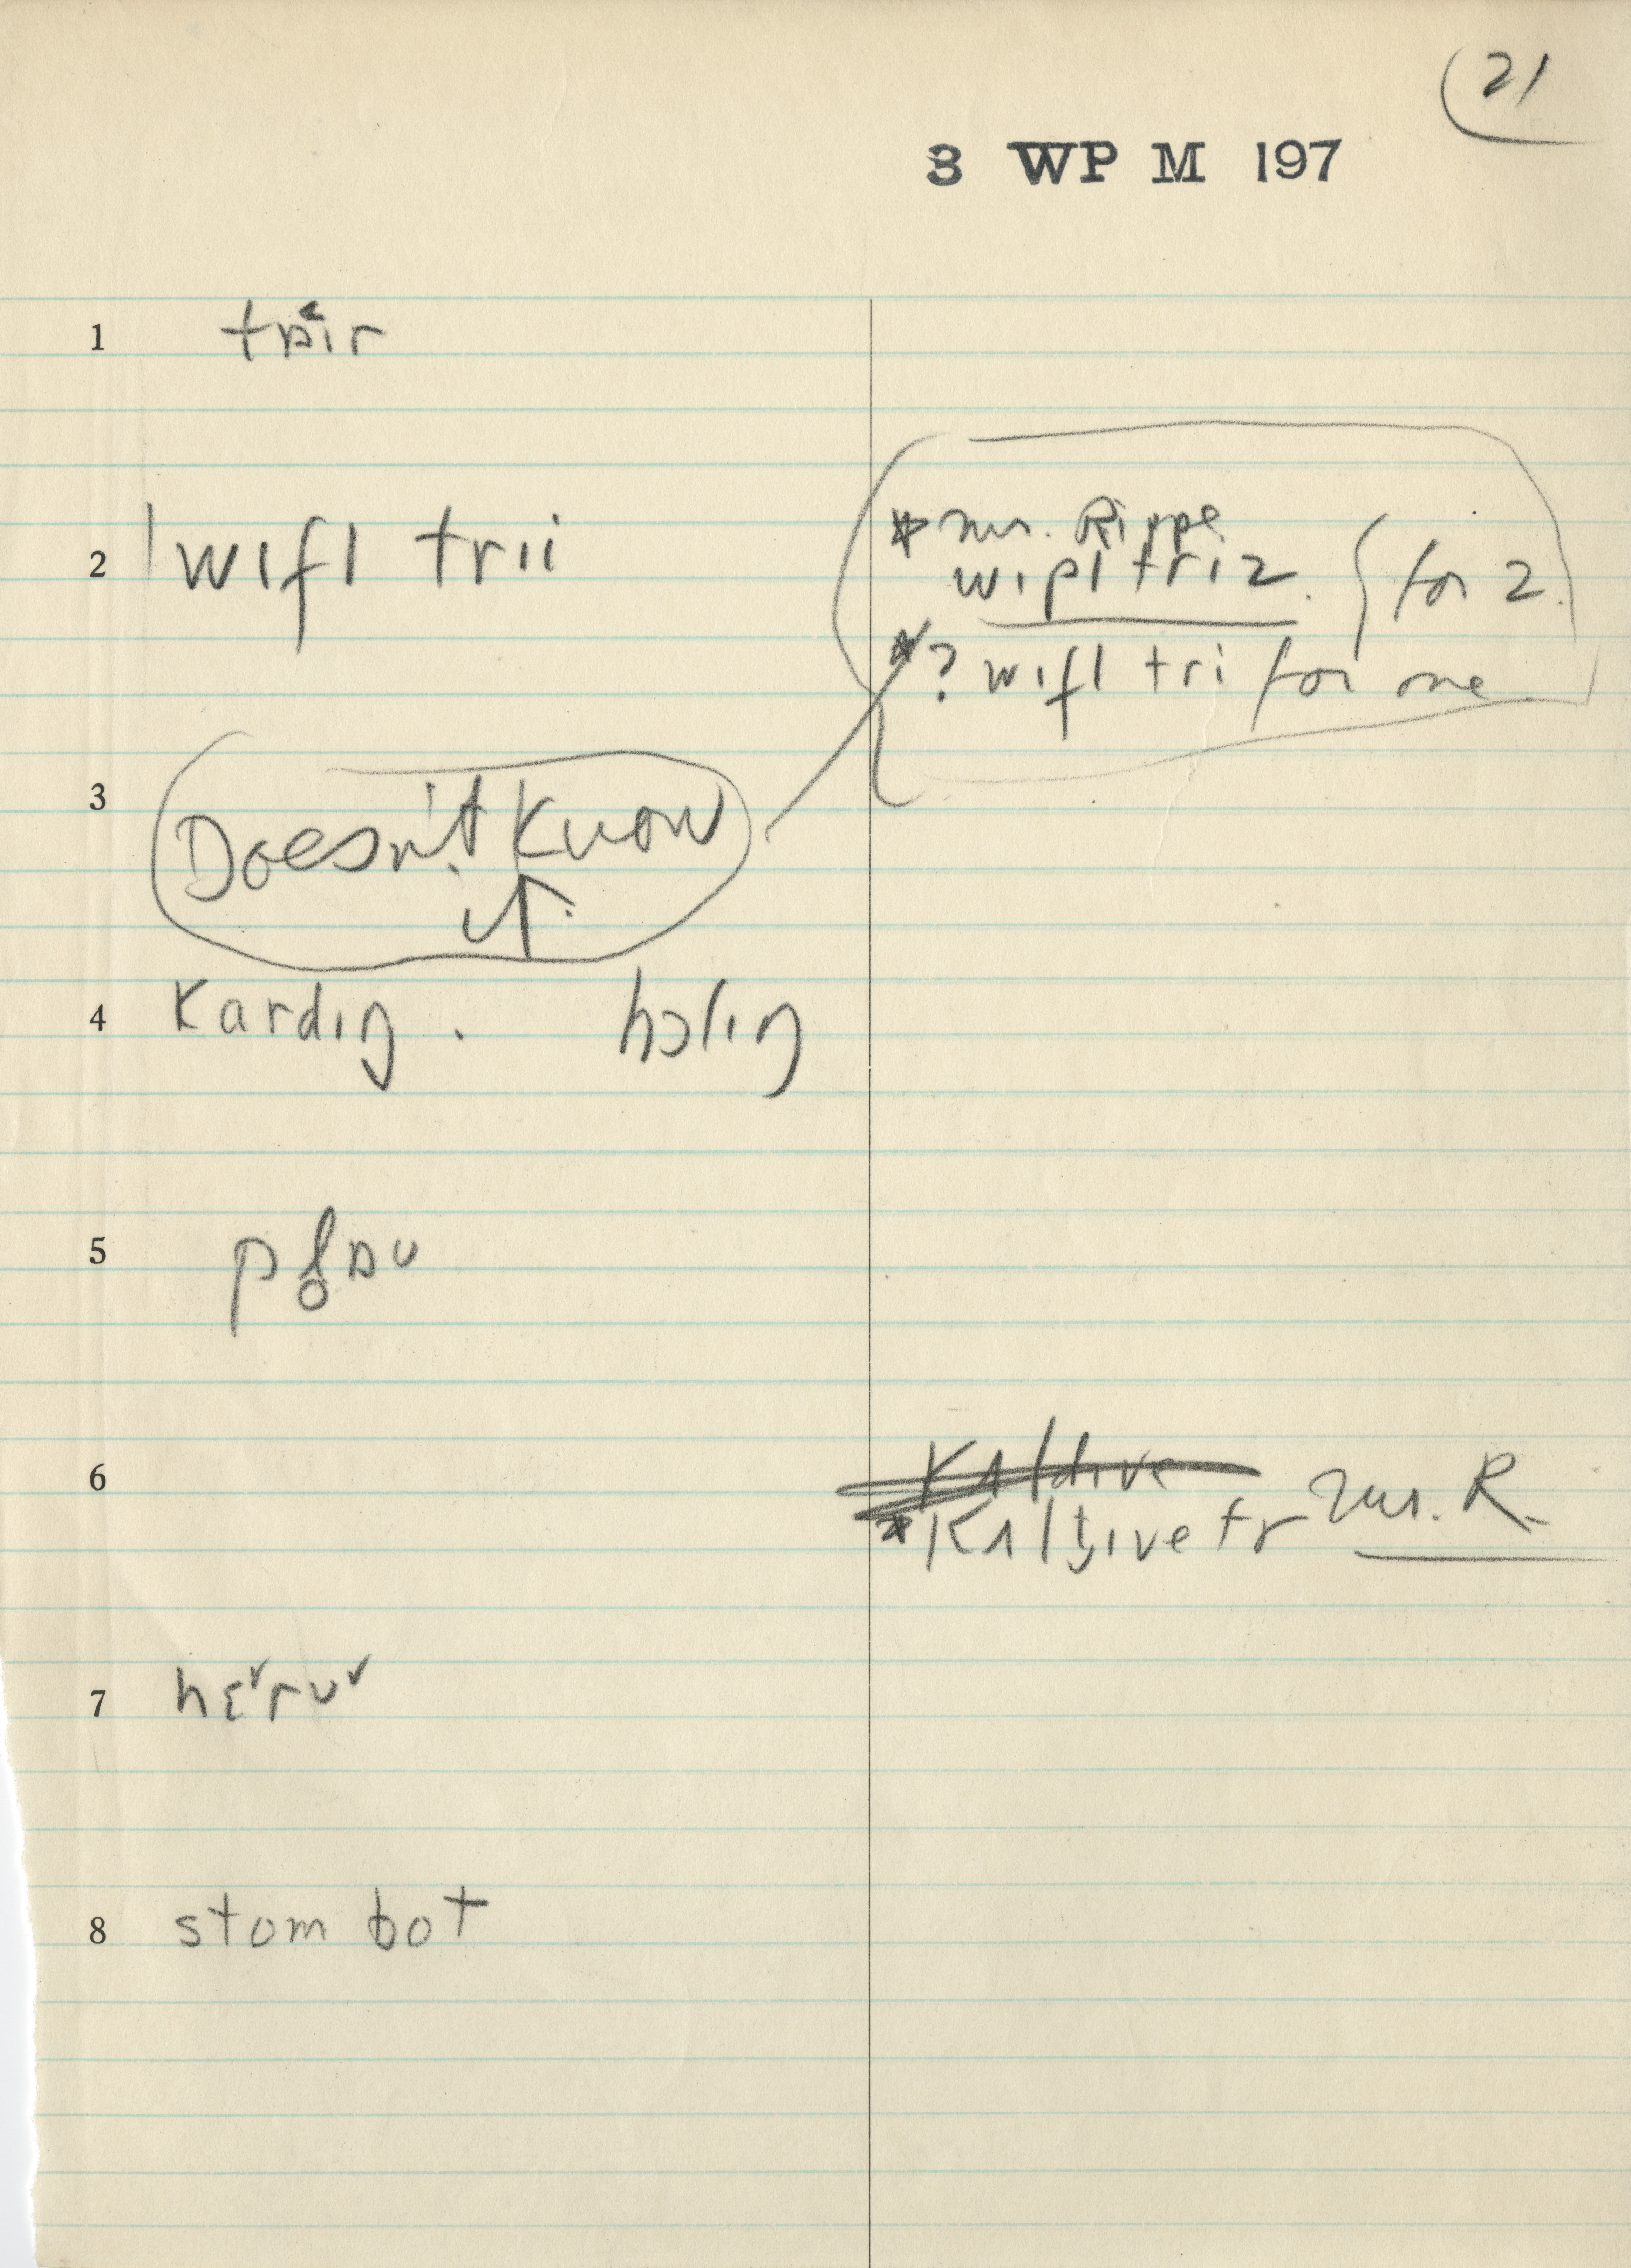 21
3 WP M 197
1 tɒir
2 wɪfl trii
* mrs. Rippe
wɪpl triz. } for 2.
* ? wɪfl tri for one
3 Doesn't Know
4 Kardɪŋ . hɔlɪŋ
5 pl̥ɒʊ
6 Kʌldɪve
* Kʌltɪvetr Mrs. R.
7 hɛ˅rʊ˅
8 stom bot